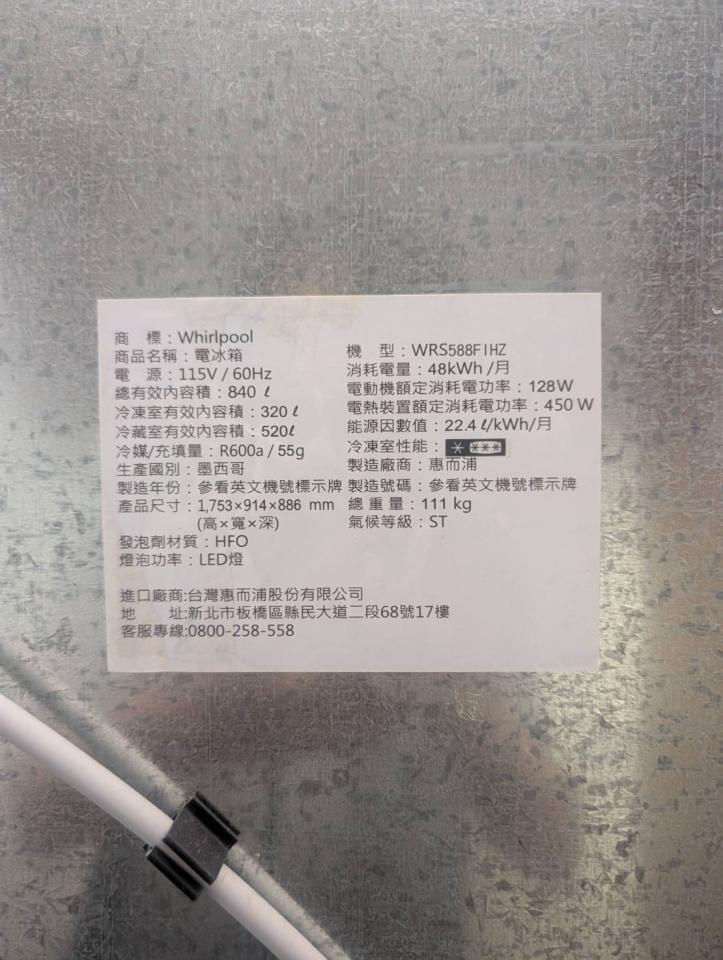 商　標：Whirlpool
商品名稱：電冰箱
電　源：115V / 60Hz
總有效內容積：840 ℓ
冷凍室有效內容積：320 ℓ
冷藏室有效內容積：520ℓ
冷媒/充填量：R600a / 55g
生產國別：墨西哥
製造年份：參看英文機號標示牌
產品尺寸：1,753×914×886 mm
(高×寬×深)
發泡劑材質：HFO
燈泡功率：LED燈
機　型：WRS588FIHZ
消耗電量：48kWh /月
電動機額定消耗電功率：128W
電熱裝置額定消耗電功率：450 W
能源因數值：22.4 ℓ/kWh/月
冷凍室性能：* ***
製造廠商：惠而浦
製造號碼：參看英文機號標示牌
總 重 量：111 kg
氣候等級：ST
進口廠商:台灣惠而浦股份有限公司
地　　址:新北市板橋區縣民大道二段68號17樓
客服專線:0800-258-558